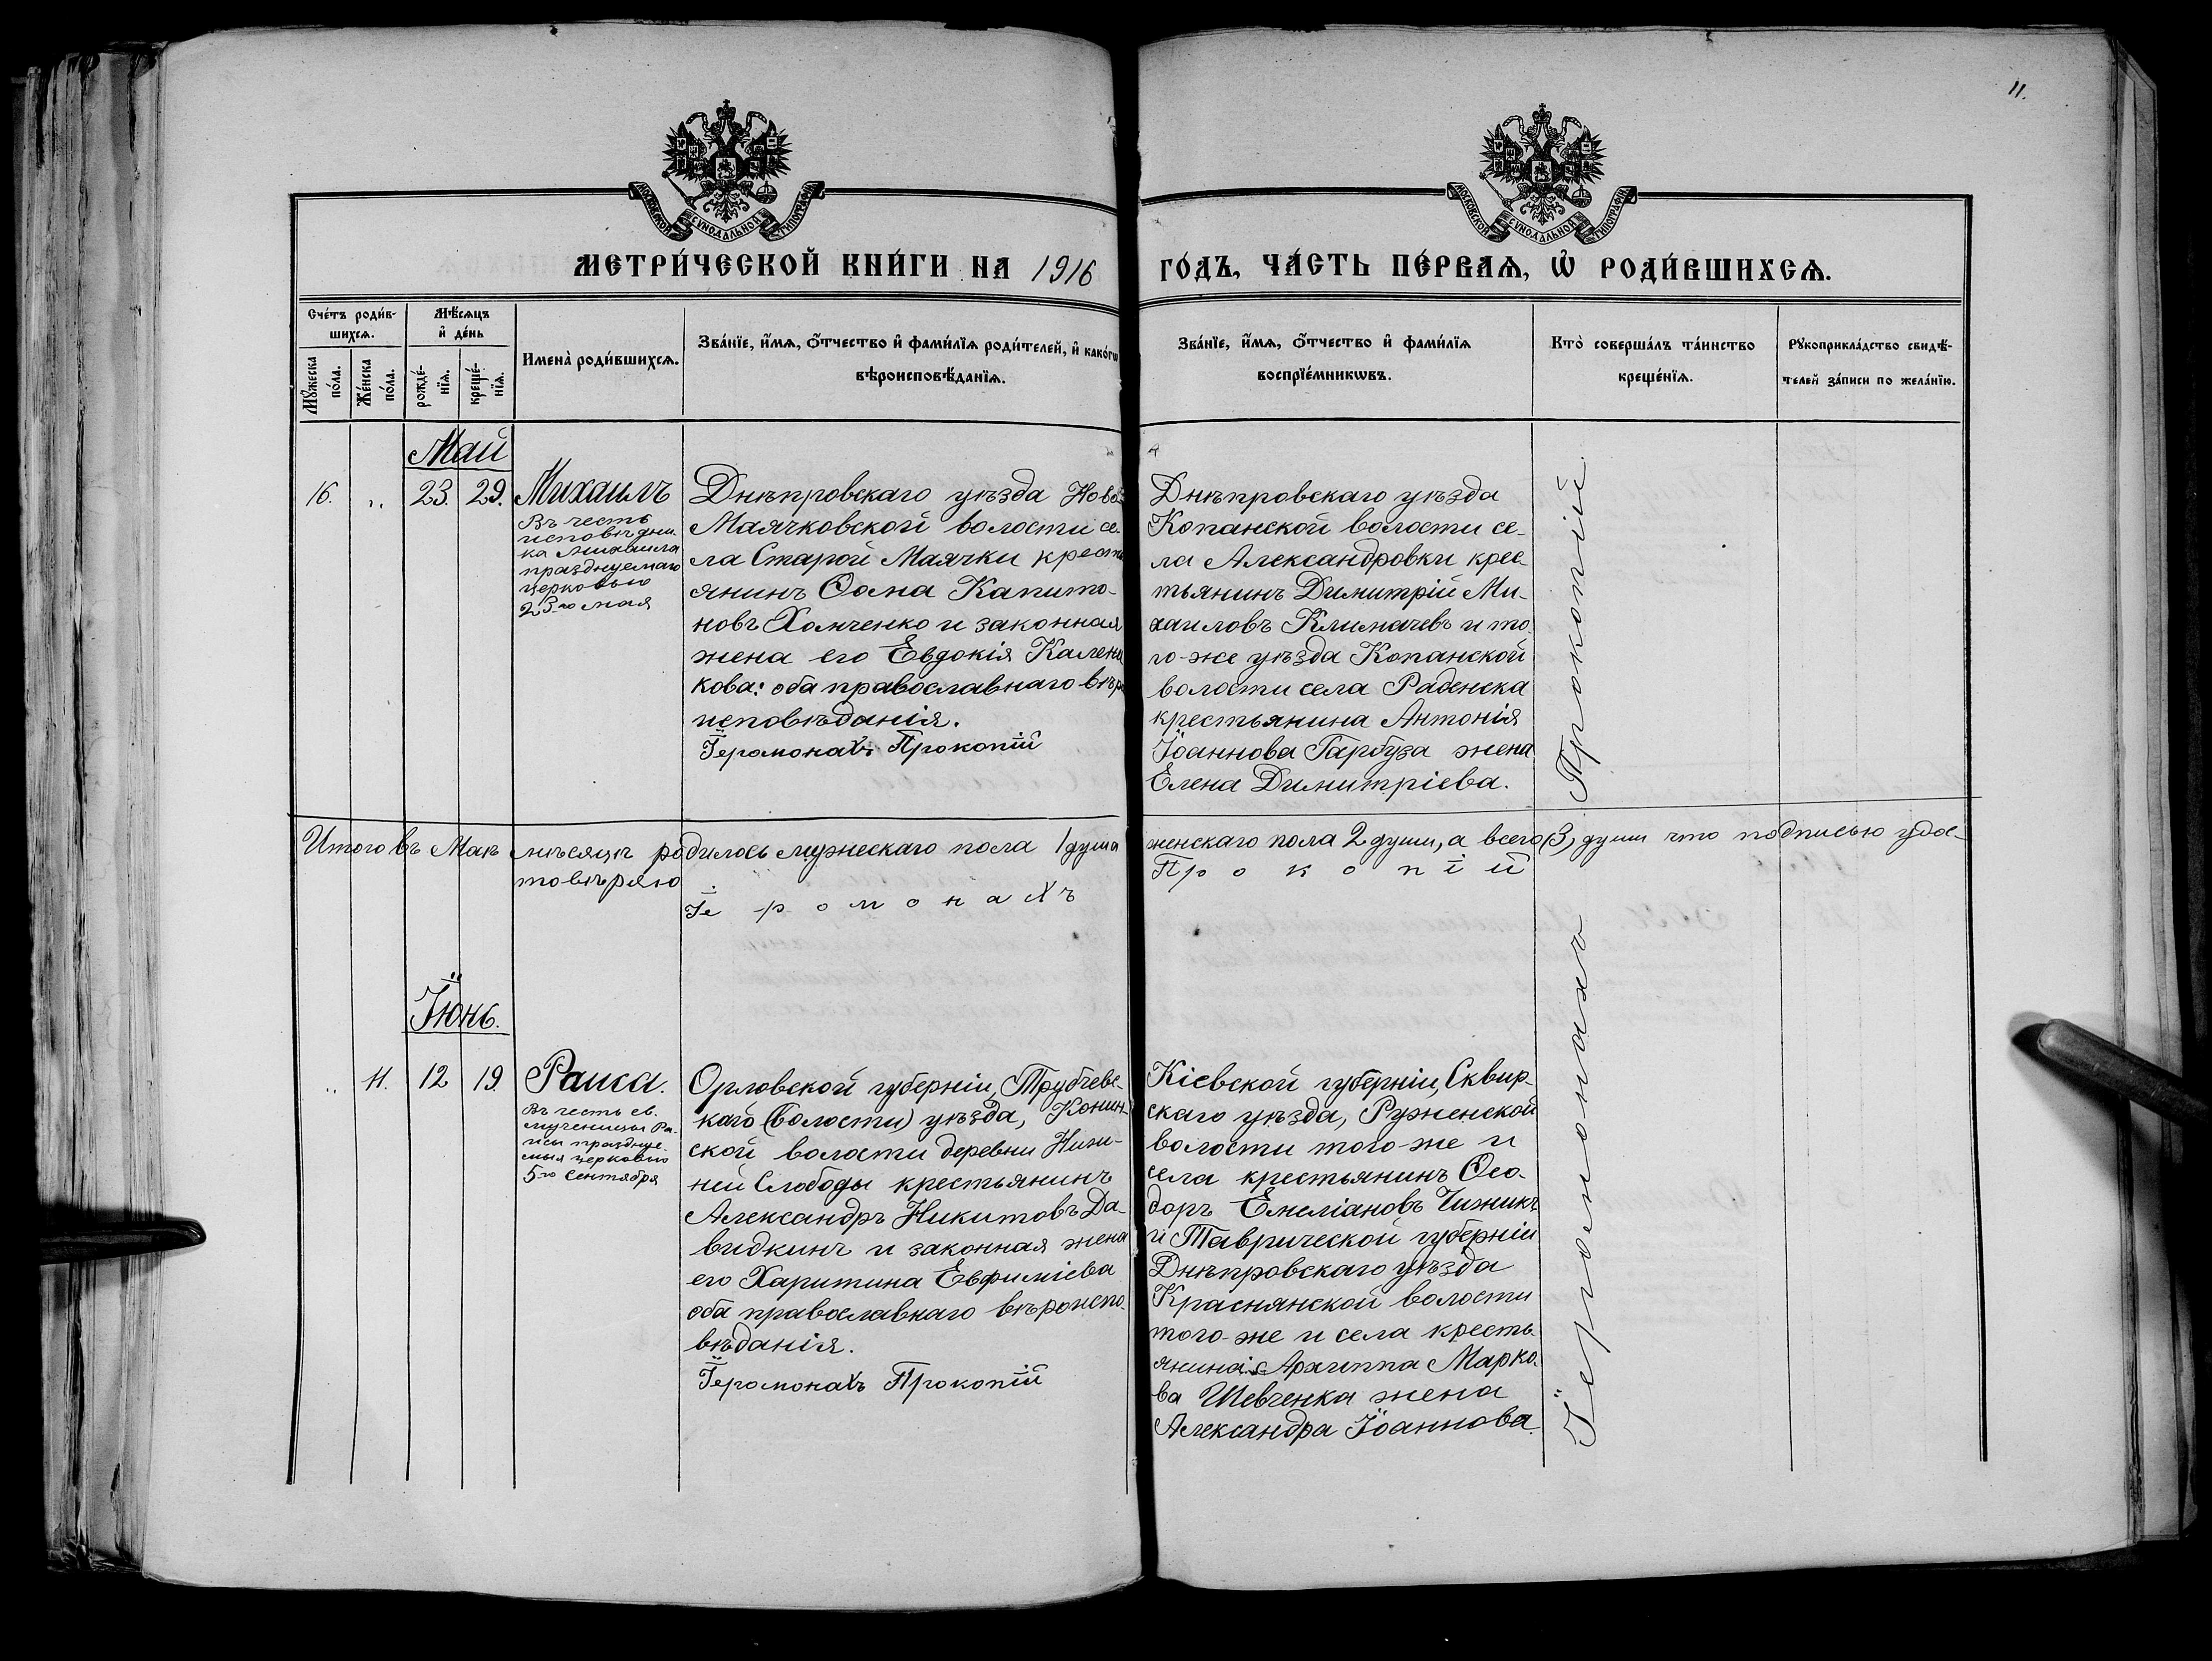 11.
МОСКОВСКОЙ СѴНОДАЛЬНОЙ ТИПОГРАФІИ
МОСКОВСКОЙ СѴНОДАЛЬНОЙ ТИПОГРАФІИ
МЕТРИ́ЧЕСКОЙ КНИ́ГИ НА 1916 ГО́ДЪ, ЧА́СТЬ ПЕ́РВАѦ, Ѿ РОДИ́ВШИХСѦ.
Сче́тъ роди́в-
шихсѧ.
Мꙋ́жеска
по́ла.
Же́нска
по́ла.
Мѣ́сѧцъ
и҆ де́нь
рожде́-
нїѧ.
креще́-
нїѧ.
Имена̀ роди́вшихсѧ.
Зва́нїе, и҆́мѧ, ѻ҆́тчество и҆ фами́лїѧ роди́телей, и҆ како́гѡ
вѣроисповѣ́данїѧ.
Зва́нїе, и҆́мѧ, ѻ҆́тчество и҆ фами́лїѧ
воспрїе́мникѡвъ.
Кто̀ соверша́лъ та́инство
креще́нїѧ.
Рꙋкоприкла́дство свидѣ́-
телей за́писи по жела́нїю.
Май
16. „ 23. 29. Михаилъ
Въ честь
исповѣдни-
ка Михаила
празднуемаго
церковью
23-го мая
Днѣпровскаго уѣзда Ново-
Маячковской волости се-
ла Старой Маячки кресть
янинъ Ѳома Капито-
новъ Хомченко и законная
жена его Евдокія Калени
кова: оба православнаго вѣро
исповѣданія.
Іеромонахъ Прокопій
Днѣпровскаго уѣзда
Копанской волости се-
ла Александровки крес-
тьянинъ Димитрій Ми-
хаиловъ Климачевъ и то-
го-же уѣзда Копанской
волости села Раденска
крестьянина Антонія
Іоаннова Гарбуза жена
Елена Димитріева.
Іеромонахъ Прокопій
Итого въ Маѣ мѣсяцѣ родилось мужескаго пола 1 душа женскаго пола 2 души, а всего (3) души что подписью удос-
товѣряю
Іеромонахъ Прокопій
Іюнь.
„ 11. 12 19. Раиса.
Въ честь св.
мученицы Ра-
исы праздние-
мыя церковью
5-го Сентября
Орловской губерніи, Трубчевс-
каго (волости) уѣзда, Конин-
ской волости деревни Ниж-
ней Слободы крестьянинъ
Александръ Никитовъ Да-
видкинъ и законная жена
его Харитина Евфиміева
оба православнаго вѣроиспо-
вѣданія.
Іеромонахъ Прокопій
Кіевской губерніи, Сквир-
скаго уѣзда, Руженской
волости того-же и
села крестьянинъ Ѳео-
доръ Емеліановъ Чижикъ
и Таврической губерніи
Днѣпровскаго уѣзда
Краснянской волости
того-же и села кресть-
янина Архиппа Марко-
ва Шевченка жена
Александра Іоаннова.